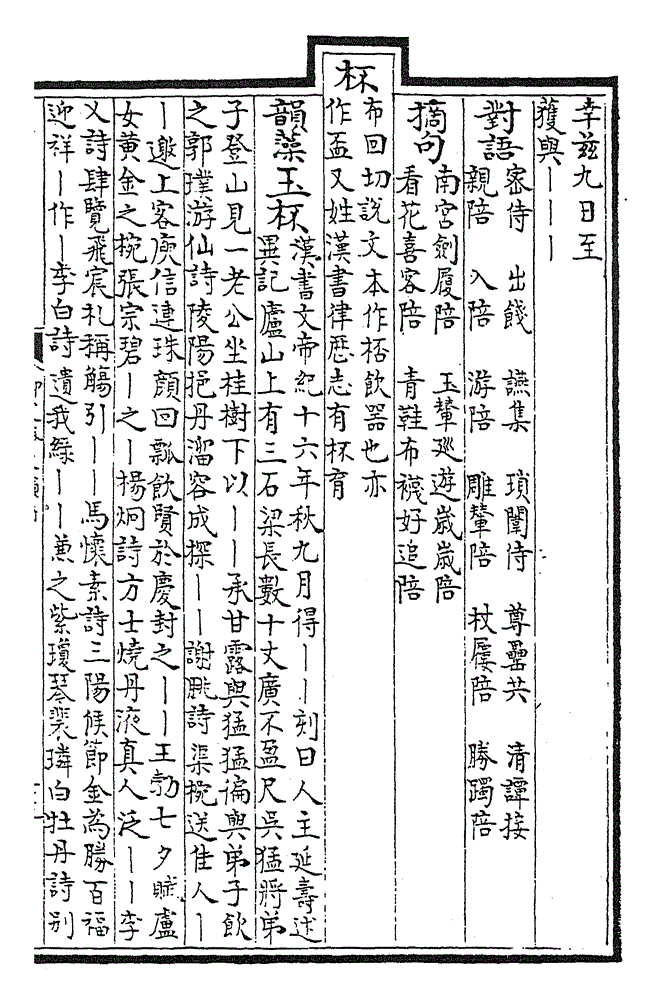 幸兹九日至
獲與丨丨丨
對語
宻侍　出餞　讌集　瑣闈侍　尊罍共　清譚接
親陪　入陪　游陪　雕輦陪　杖屨陪　勝躅陪
摘句
南宫劍履陪　玉輦廵遊歳歳陪
看花喜客陪　青鞋布襪好追陪
杯
布回切説文本作桮飲器也亦
作盃又姓漢書律歴志有杯育
韻藻
玉杯
漢書文帝紀十六年秋九月得丨丨刻曰人主延壽述
異記廬山上有三石梁長數十丈廣不盈尺吳猛將弟
子登山見一老公坐桂樹下以丨丨承甘露與猛猛徧與弟子飲
之郭璞游仙詩陵陽挹丹溜容成探丨丨謝朓詩渠椀送佳人丨
丨邀上客庾信連珠顔回瓢飲賢於慶封之丨丨王勃七夕賦盧
女黄金之椀張宗碧丨之丨楊炯詩方士燒丹液真人泛丨丨李
乂詩肆覽飛宸札稱觴引丨丨馬懐素詩三陽候節金為勝百福
迎祥丨作丨李白詩遺我綠丨丨兼之紫瓊琴裴璘白牡丹詩别